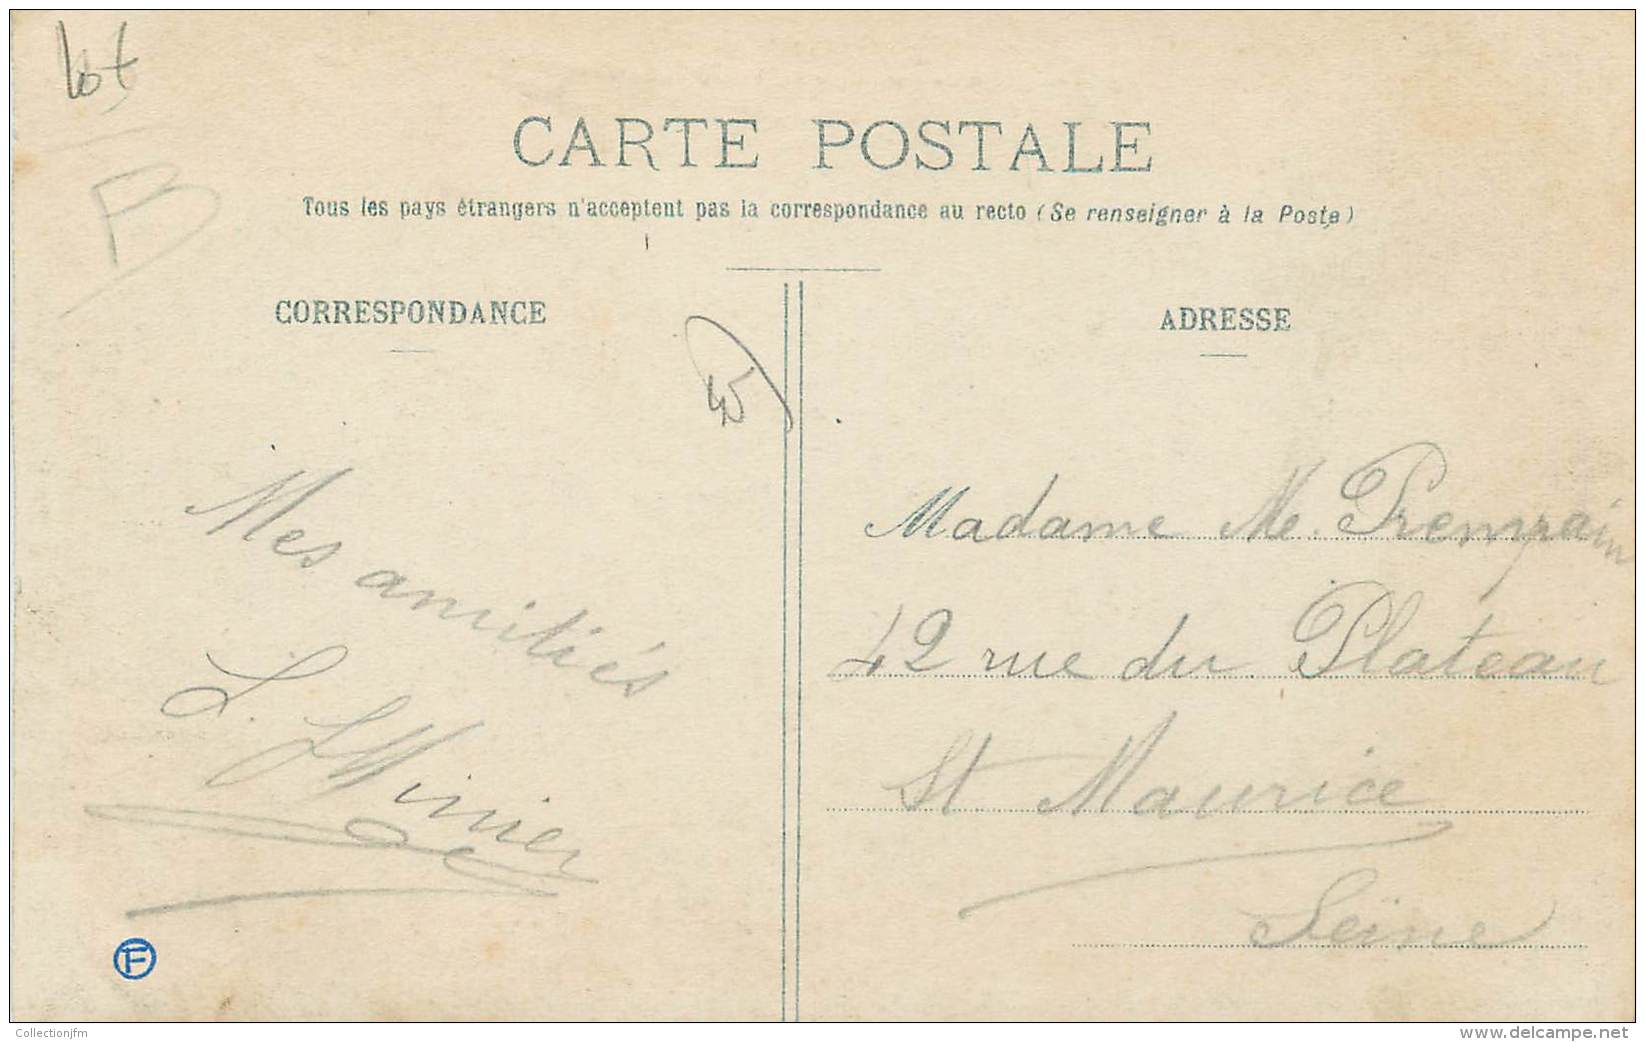 lot
CARTE POSTALE
Tous les pays étrangers n'acceptent pas la correspondance au recto (Se renseigner à la Poste)
CORRESPONDANCE
45
Mes amitiés
L.
F
ADRESSE
Madame M. Prempain
42 rue du Plateau
St Maurice
Seine
Collectionjfm
www.delcampe.net